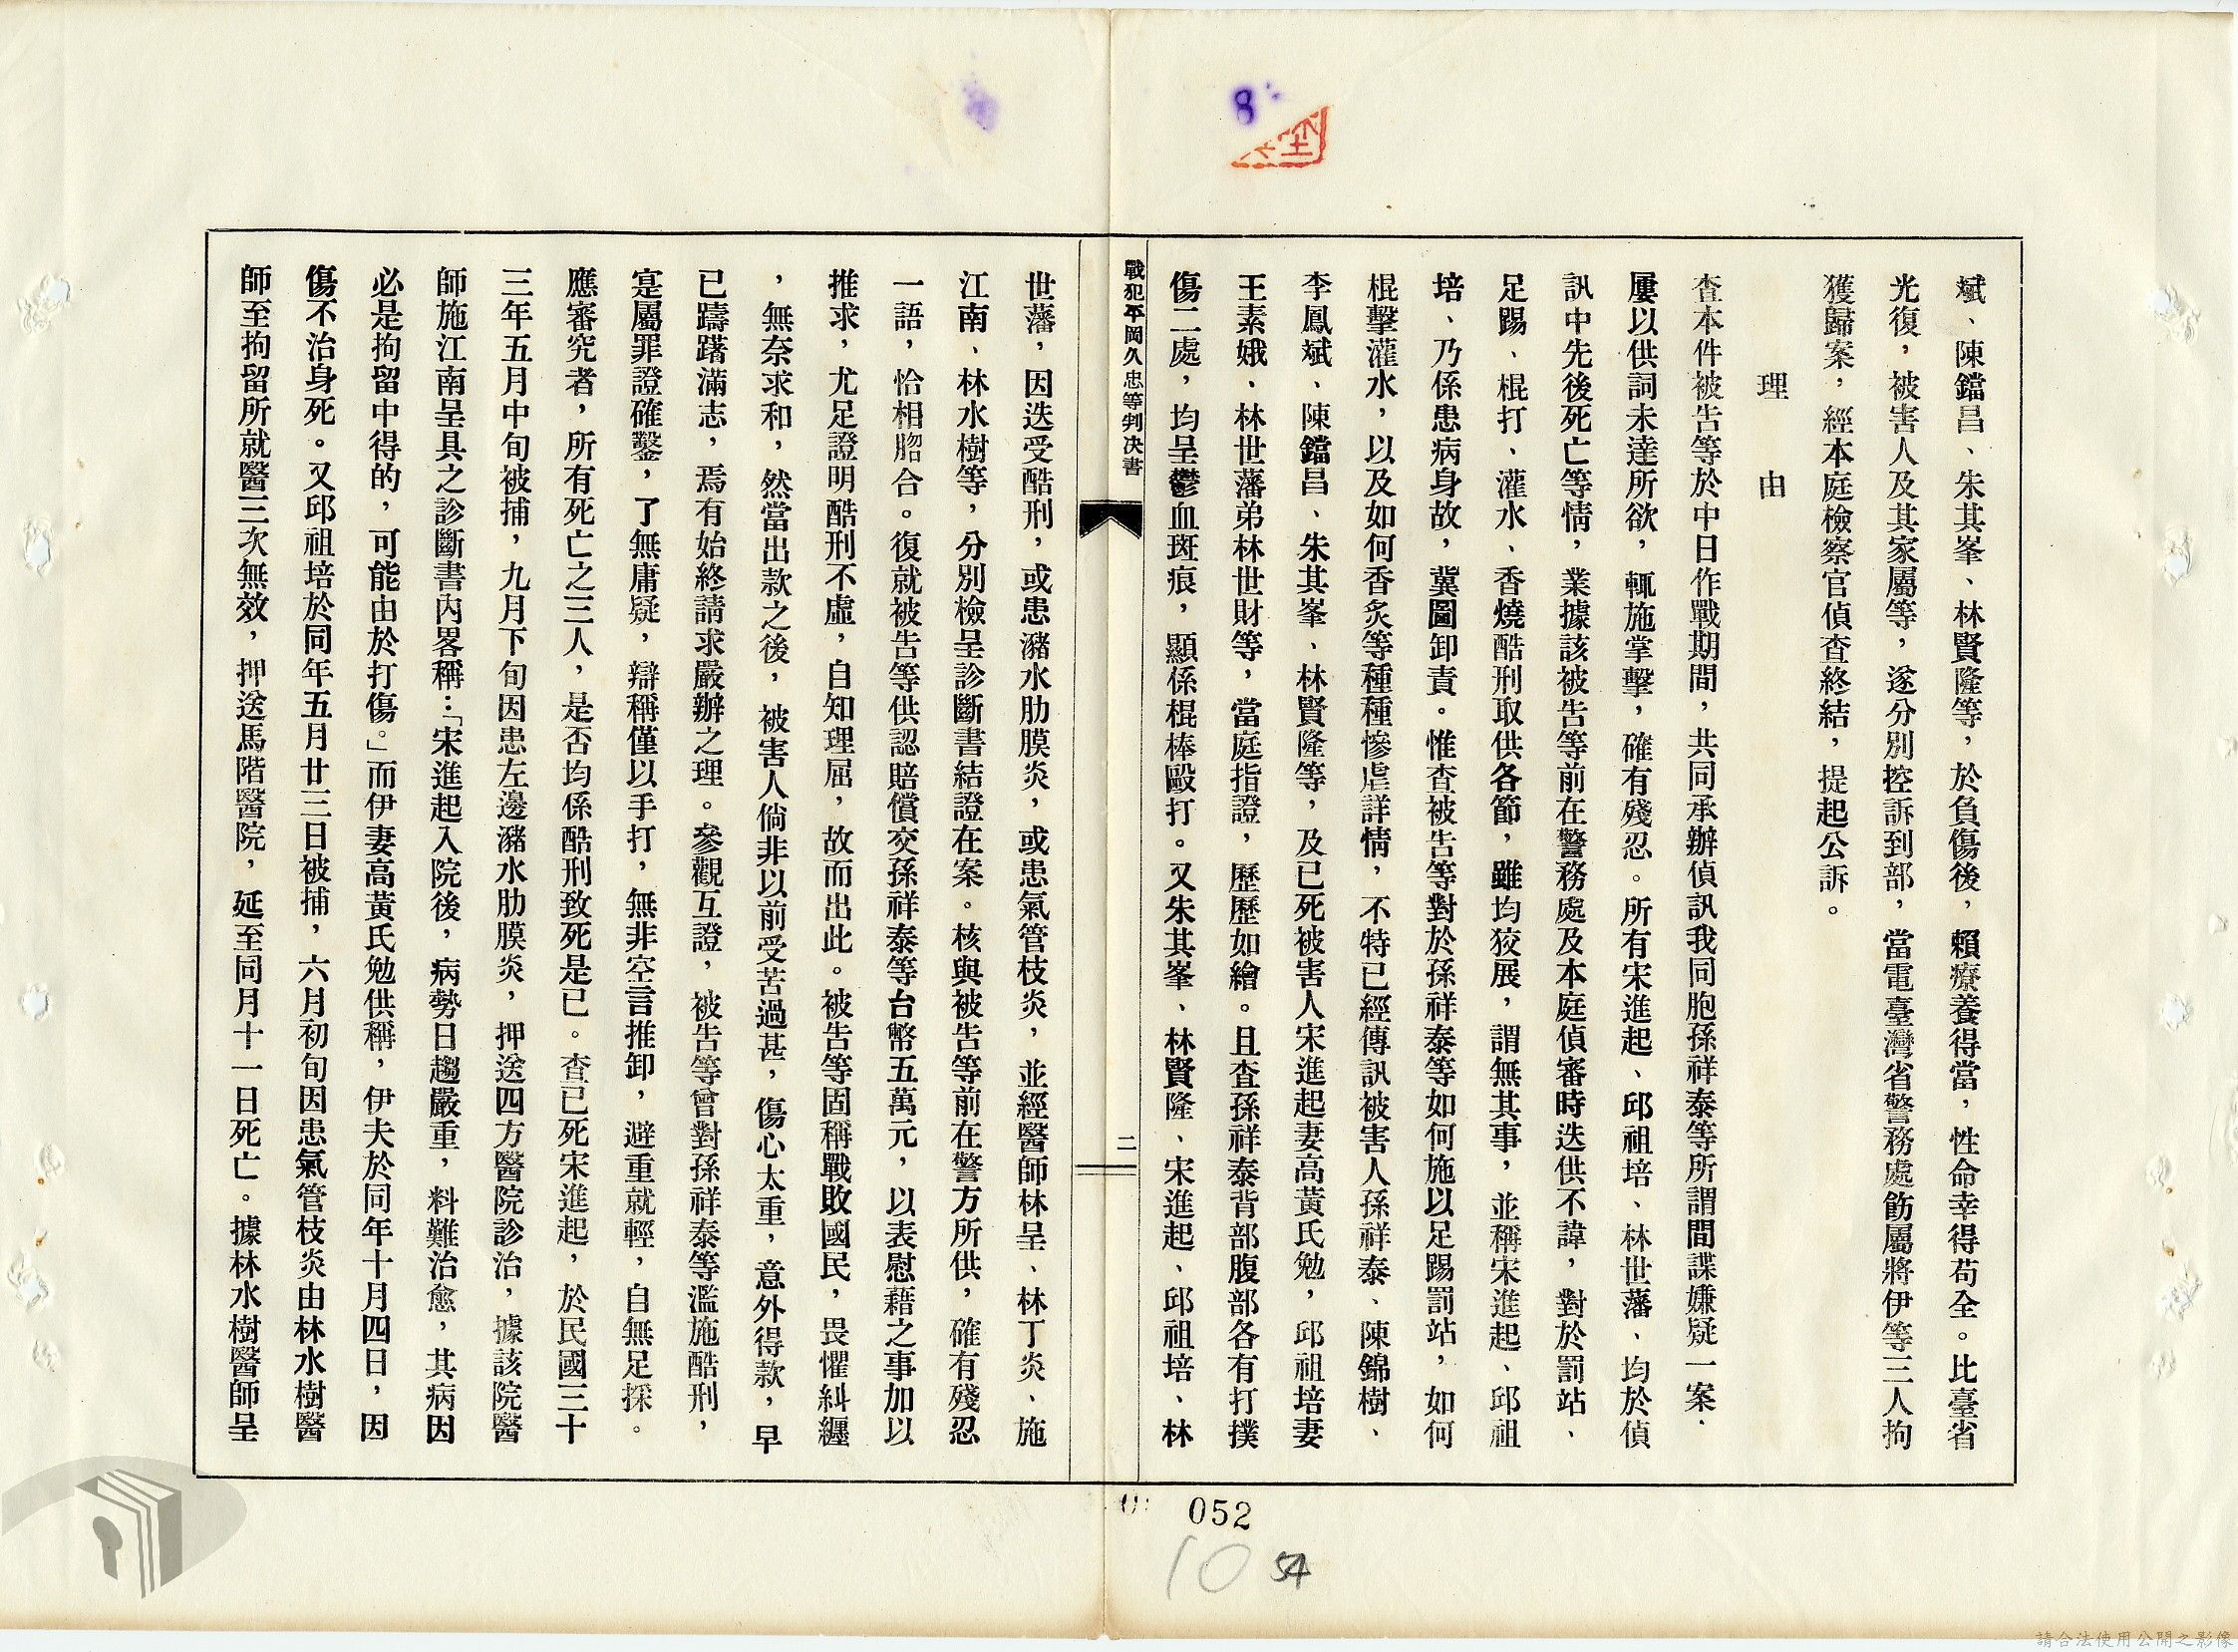 8
斌、陳鐺昌、朱其峯、林賢隆等，於負傷後，賴療養得當，性命幸得苟全。比臺省
光復，被害人及其家屬等，遂分別控訴到部，當電臺灣省警務處飭屬將伊等三人拘
獲歸案，經本庭檢察官偵查終結，提起公訴。
理由
查本件被告等於中日作戰期間，共同承辦偵訊我同胞孫祥泰等所謂間諜嫌疑一案，
屢以供詞未達所欲，輒施掌擊，確有殘忍。所有宋進起、邱祖培、林世藩、均於偵
訊中先後死亡等情，業據該被告等前在警務處及本庭偵審時迭供不諱，對於罰站、
足踢、棍打、灌水、香燒酷刑取供各節，雖均狡展，謂無其事，並稱宋進起、邱祖
培、乃係患病身故，冀圖卸責。惟查被告等對於孫祥泰等如何施以足踢罰站，如何
棍擊灌水，以及如何香炙等種種慘虐詳情，不特已經傳訊被害人孫祥泰、陳錦樹、
李鳳斌、陳鐺昌、朱其峯、林賢隆等，及已死被害人宋進起妻高黃氏勉，邱祖培妻
王素娥、林世藩弟林世財等，當庭指證，歷歷如繪。且查孫祥泰背部腹部各有打撲
傷二處，均呈鬱血斑痕，顯係棍棒毆打。又朱其峯、林賢隆、宋進起、邱祖培、林
戰犯平岡久忠等判決書
二
世藩，因迭受酷刑，或患瀦水肋膜炎，或患氣管枝炎，並經醫師林呈、林丁炎、施
江南、林水樹等，分別檢呈診斷書結證在案。核與被告等前在警方所供，確有殘忍
一語，恰相脗合。復就被告等供認賠償交孫祥泰等台幣五萬元，以表慰藉之事加以
推求，尤足證明酷刑不虛，自知理屈，故而出此。被告等固稱戰敗國民，畏懼糾纏
，無奈求和，然當出款之後，被害人倘非以前受苦過甚，傷心太重，意外得款，早
已躊躇滿志，焉有始終請求嚴辦之理。參觀互證，被告等曾對孫祥泰等濫施酷刑，
寔屬罪證確鑿，了無庸疑，辯稱僅以手打，無非空言推卸，避重就輕，自無足採。
應審究者，所有死亡之三人，是否均係酷刑致死是已。查已死宋進起，於民國三十
三年五月中旬被捕，九月下旬因患左邊瀦水肋膜炎，押送四方醫院診治，據該院醫
師施江南呈具之診斷書內畧稱：「宋進起入院後，病勢日趨嚴重，料難治愈，其病因
必是拘留中得的，可能由於打傷。」而伊妻高黃氏勉供稱，伊夫於同年十月四日，因
傷不治身死。又邱祖培於同年五月廿三日被捕，六月初旬因患氣管枝炎由林水樹醫
師至拘留所就醫三次無效，押送馬階醫院，延至同月十一日死亡。據林水樹醫師呈
052
10
54
請合法使用公開之影像